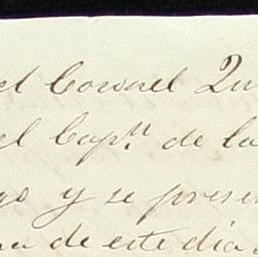 el Coronel Qu
el Cap.n de la
go y se presen
na de este dia